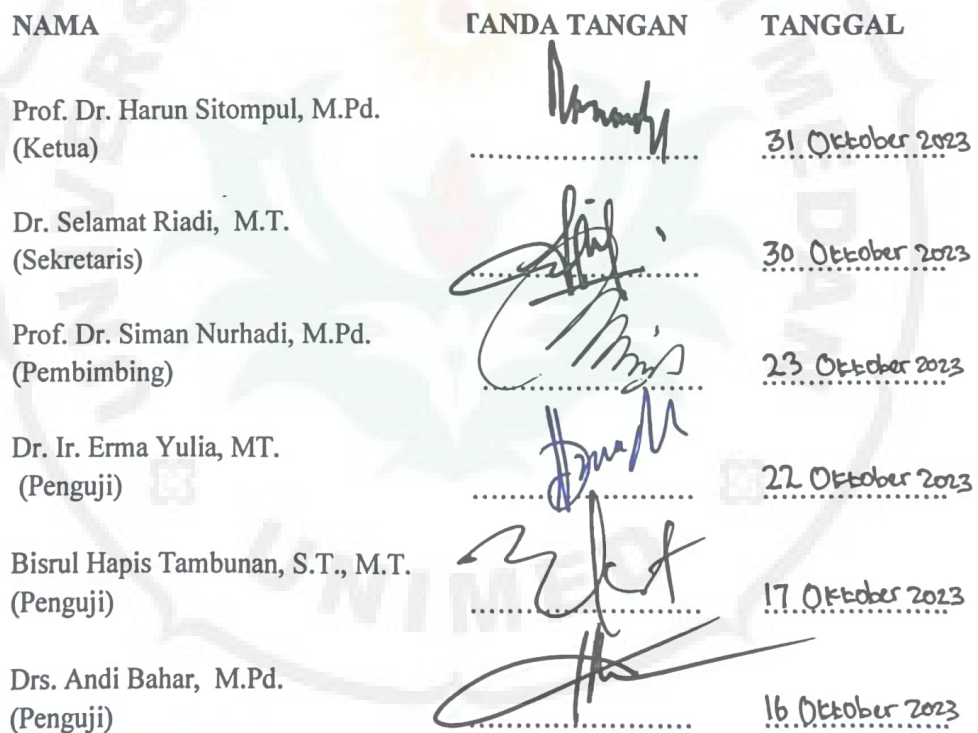 NAMA TANDA TANGAN TANGGAL
Prof. Dr. Harun Sitompul, M.Pd.
(Ketua) 31 Oktober 2023
Dr. Selamat Riadi, M.T.
(Sekretaris) 30 Oktober 2023
Prof. Dr. Siman Nurhadi, M.Pd.
(Pembimbing) 23 Oktober 2023
Dr. Ir. Erma Yulia, MT.
(Penguji) 22 Oktober 2023
Bisrul Hapis Tambunan, S.T., M.T.
(Penguji) 17 Oktober 2023
Drs. Andi Bahar, M.Pd.
(Penguji) 16 Oktober 2023
UNIMED